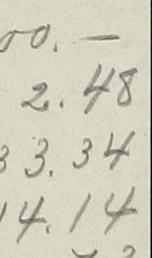 00. —
2.48
33.34
14.14